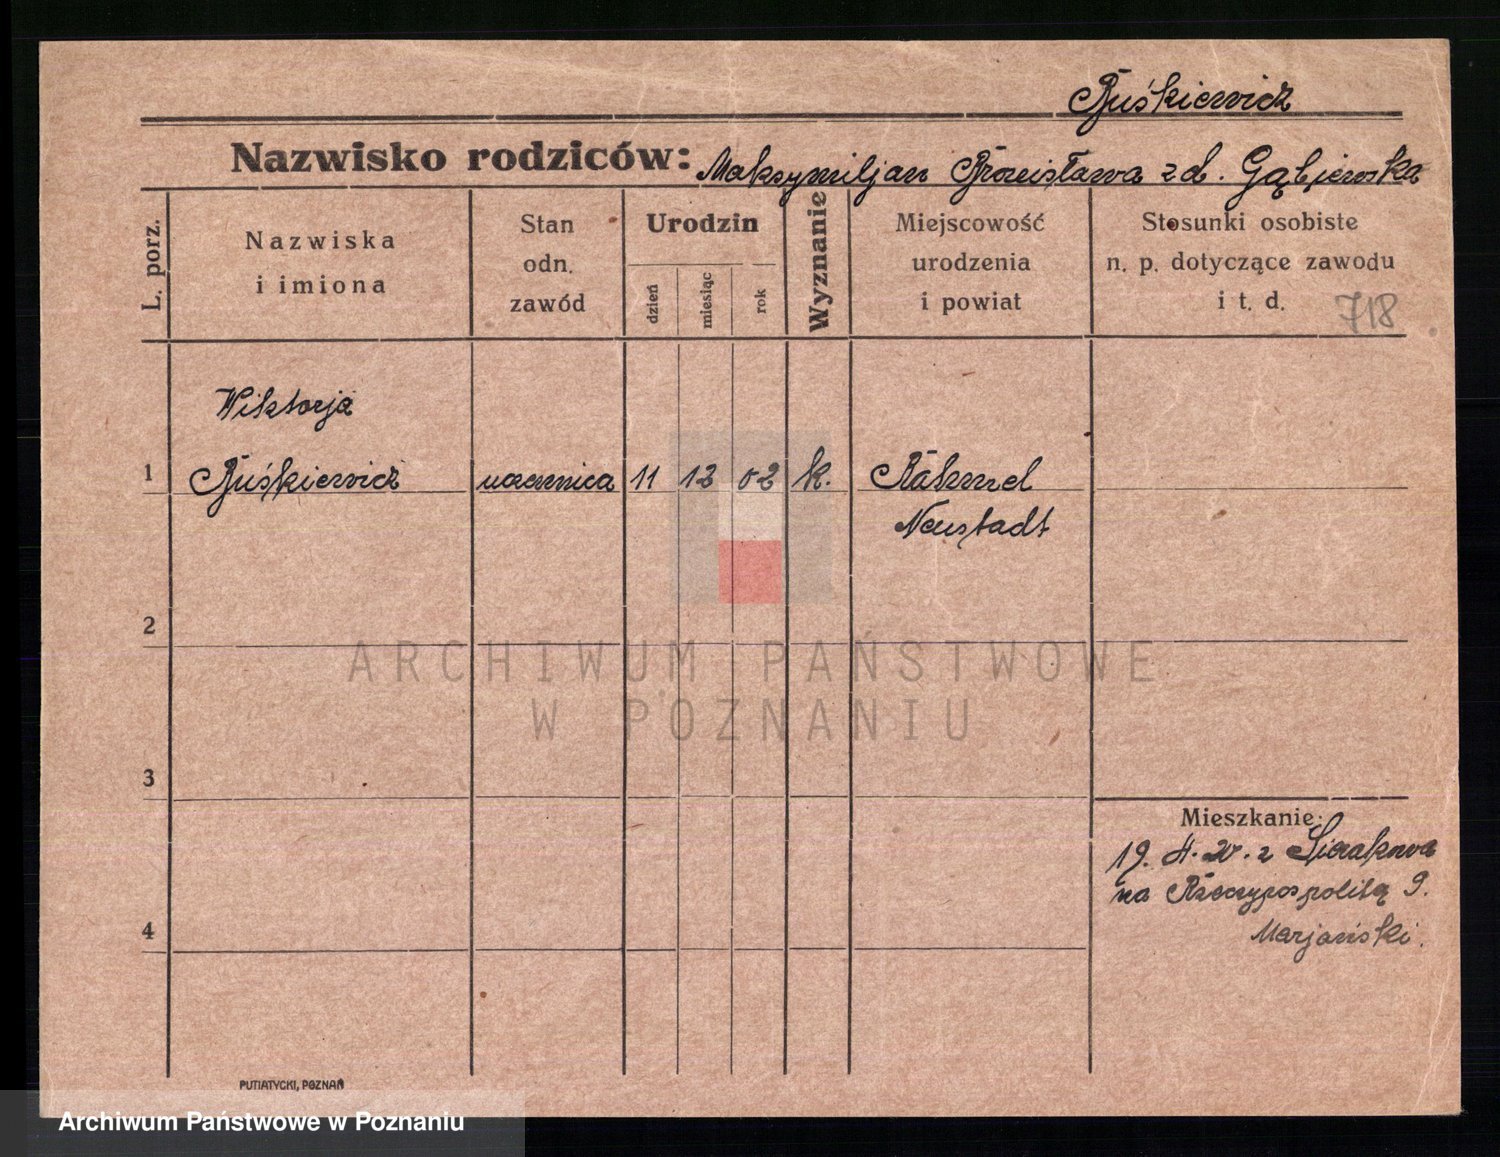 Ruśkiewicz
Nazwisko rodziców: Maksymiljan Bronisława z d. Gąbiewska
L. porz.
Nazwiska
i imiona
Stan
odn.
zawód
Urodzin
dzień
miesiąc
rok
Wyznanie
Miejscowość
urodzenia
i powiat
Stosunki osobiste
n. p. dotyczące zawodu
i t. d.
718
Wiktorja
1 Ruśkiewicz uczennica 11 12 02 k. Rahmel
Neustadt
2
3
4
Mieszkanie:
19. 4. 20. z Sierakowa
na Rzeczypospolitą 9.
Marjański.
PUTIATYCKI, POZNAŃ
ARCHIWUM PAŃSTWOWE
W POZNANIU
Archiwum Państwowe w Poznaniu